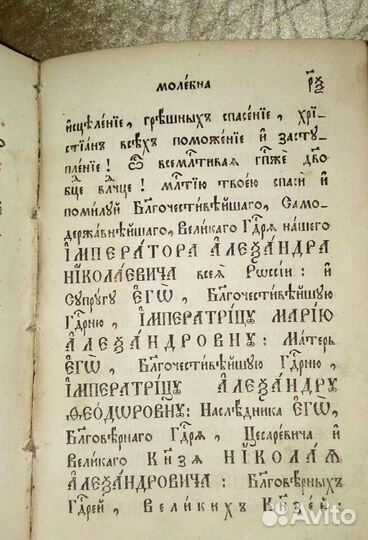 МОЛЕ́БНА рѯ҃
и҆сцѣле́нїе, грѣ́шныхъ спасе́нїе, хрі-
стїа́нъ всѣ́хъ поможе́нїе и҆ застꙋ-
пле́нїе! Ѽ всемлⷭ҇тивая гпⷭ҇же дв҃о
бц҃е влⷣчце! млⷭ҇тїю твое́ю спаси̑ и҆
поми́лꙋй Бл҃гочести́вѣйшаго, Само-
держа́внѣйшаго, Вели́каго Гдⷭ҇ря на́шего
І҆МПЕРА́ТОРА А҆ЛЕѮА́НДРА
НІКОЛА́ЕВИЧА всеѧ̀ Рѡссі́и: и҆
Сꙋпрꙋ́гꙋ Є҆ГѠ̀, Бл҃гочести́вѣйшꙋю
Гдⷭ҇рню, І҆МПЕРАТРИ́ЦꙊ МАРІ́Ю
А҆ЛЕѮА́НДРОВНꙊ: Ма́терь
Є҆ГѠ̀, Бл҃гочести́вѣйшꙋю Гдⷭ҇рню,
І҆МПЕРАТРИ́ЦꙊ А҆ЛЕѮА́НДРꙊ
ѲЕѺДѠРОВНꙊ: Наслѣ́дника Є҆ГѠ̀,
Бл҃говѣ́рнаго Гдⷭ҇ря, Цесаре́вича и҆
Вели́каго Кнѧ́зѧ НІКОЛА́Ѧ
А҆ЛЕѮА́НДРОВИЧА: Бл҃говѣ́рныхъ
Гдⷭ҇рей, Вели́кихъ Кнѧзе́й:
Avito